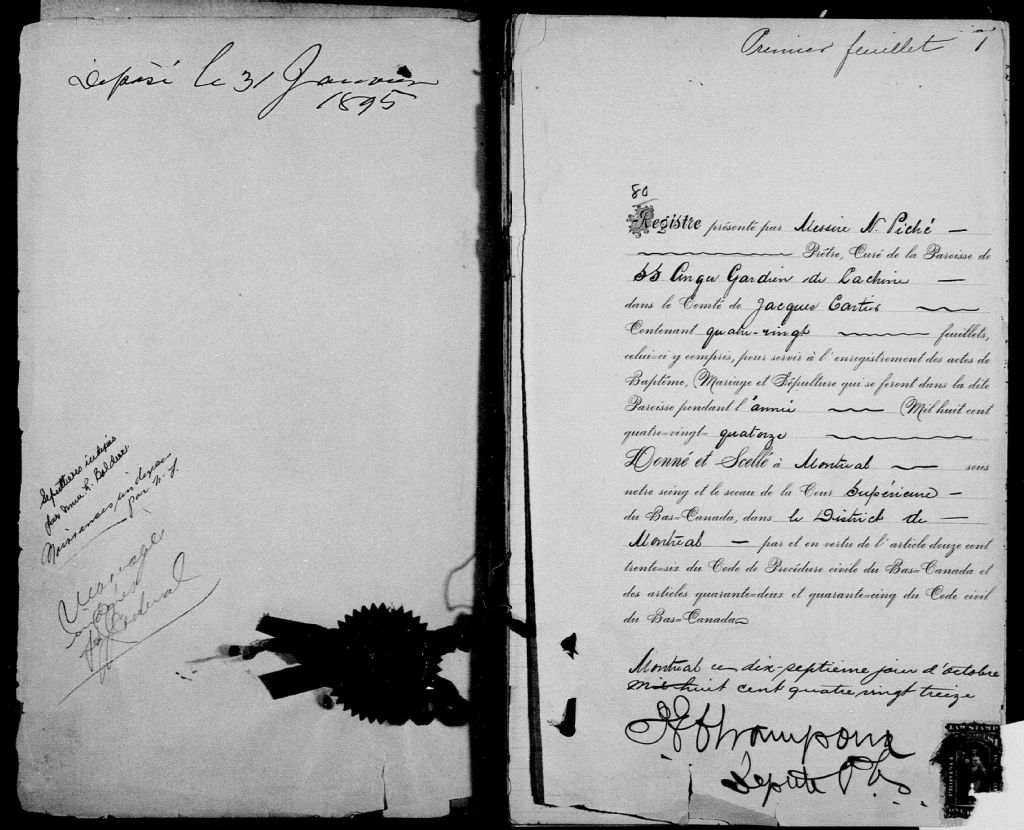 Déposé le 31 Janvier
1895
Sépultures indexées
par Mme R. Boldüc
Naissances indexées
par
Mariage
Premier feuillet 1
80
Registre présenté par Messire N. Piché —
Prêtre, Curé de la Paroisse de
SS Anges Gardien de Lachine —
dans le Comté de Jacques Cartier
Contenant quatre-vingt feuillets,
celui=ci y compris, pour servir à l'enregistrement des actes de
Baptême, Mariage et Sépulture qui se feront dans la dite
Paroisse pendant l'année Mil huit cent
quatre=vingt- quatorze
Donné et Scellé à Montréal sous
notre seing et le sceau de la Cour Supérieure —
du Bas=Canada, dans le District de —
Montréal — par et en vertu de l'article douze cent
trente=six du Code de Procédure civile du Bas=Canada et
des articles quarante=deux et quarante=cinq du Code civil
du Bas=Canada
Montréal ce dix-septième jour d'octobre
mil huit cent quatre vingt treize
Députe P
LAW STAMP